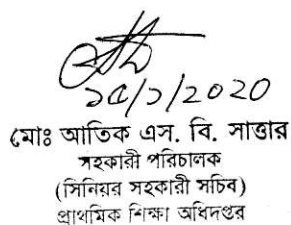 ১৫/১/2020
মোঃ আতিক এস. বি. সাত্তার
সহকারী পরিচালক
(সিনিয়র সহকারী সচিব)
প্রাথমিক শিক্ষা অধিদপ্তর